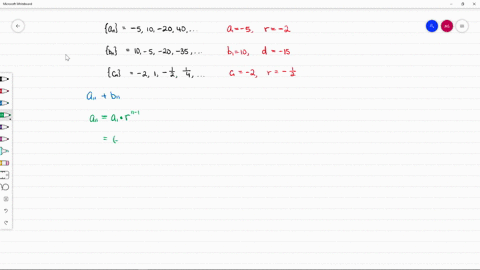 Microsoft Whiteboard
{aₙ} = -5, 10, -20, 40, ... a = -5, r = -2
{bₙ} = 10, -5, -20, -35, ... b₁ = 10, d = -15
{cₙ} = -2, 1, -1/2, 1/4, ... c₁ = -2, r = -1/2
a₁₁ + b₁₁
a₁₁ = a₁ • r¹¹⁻¹
= (